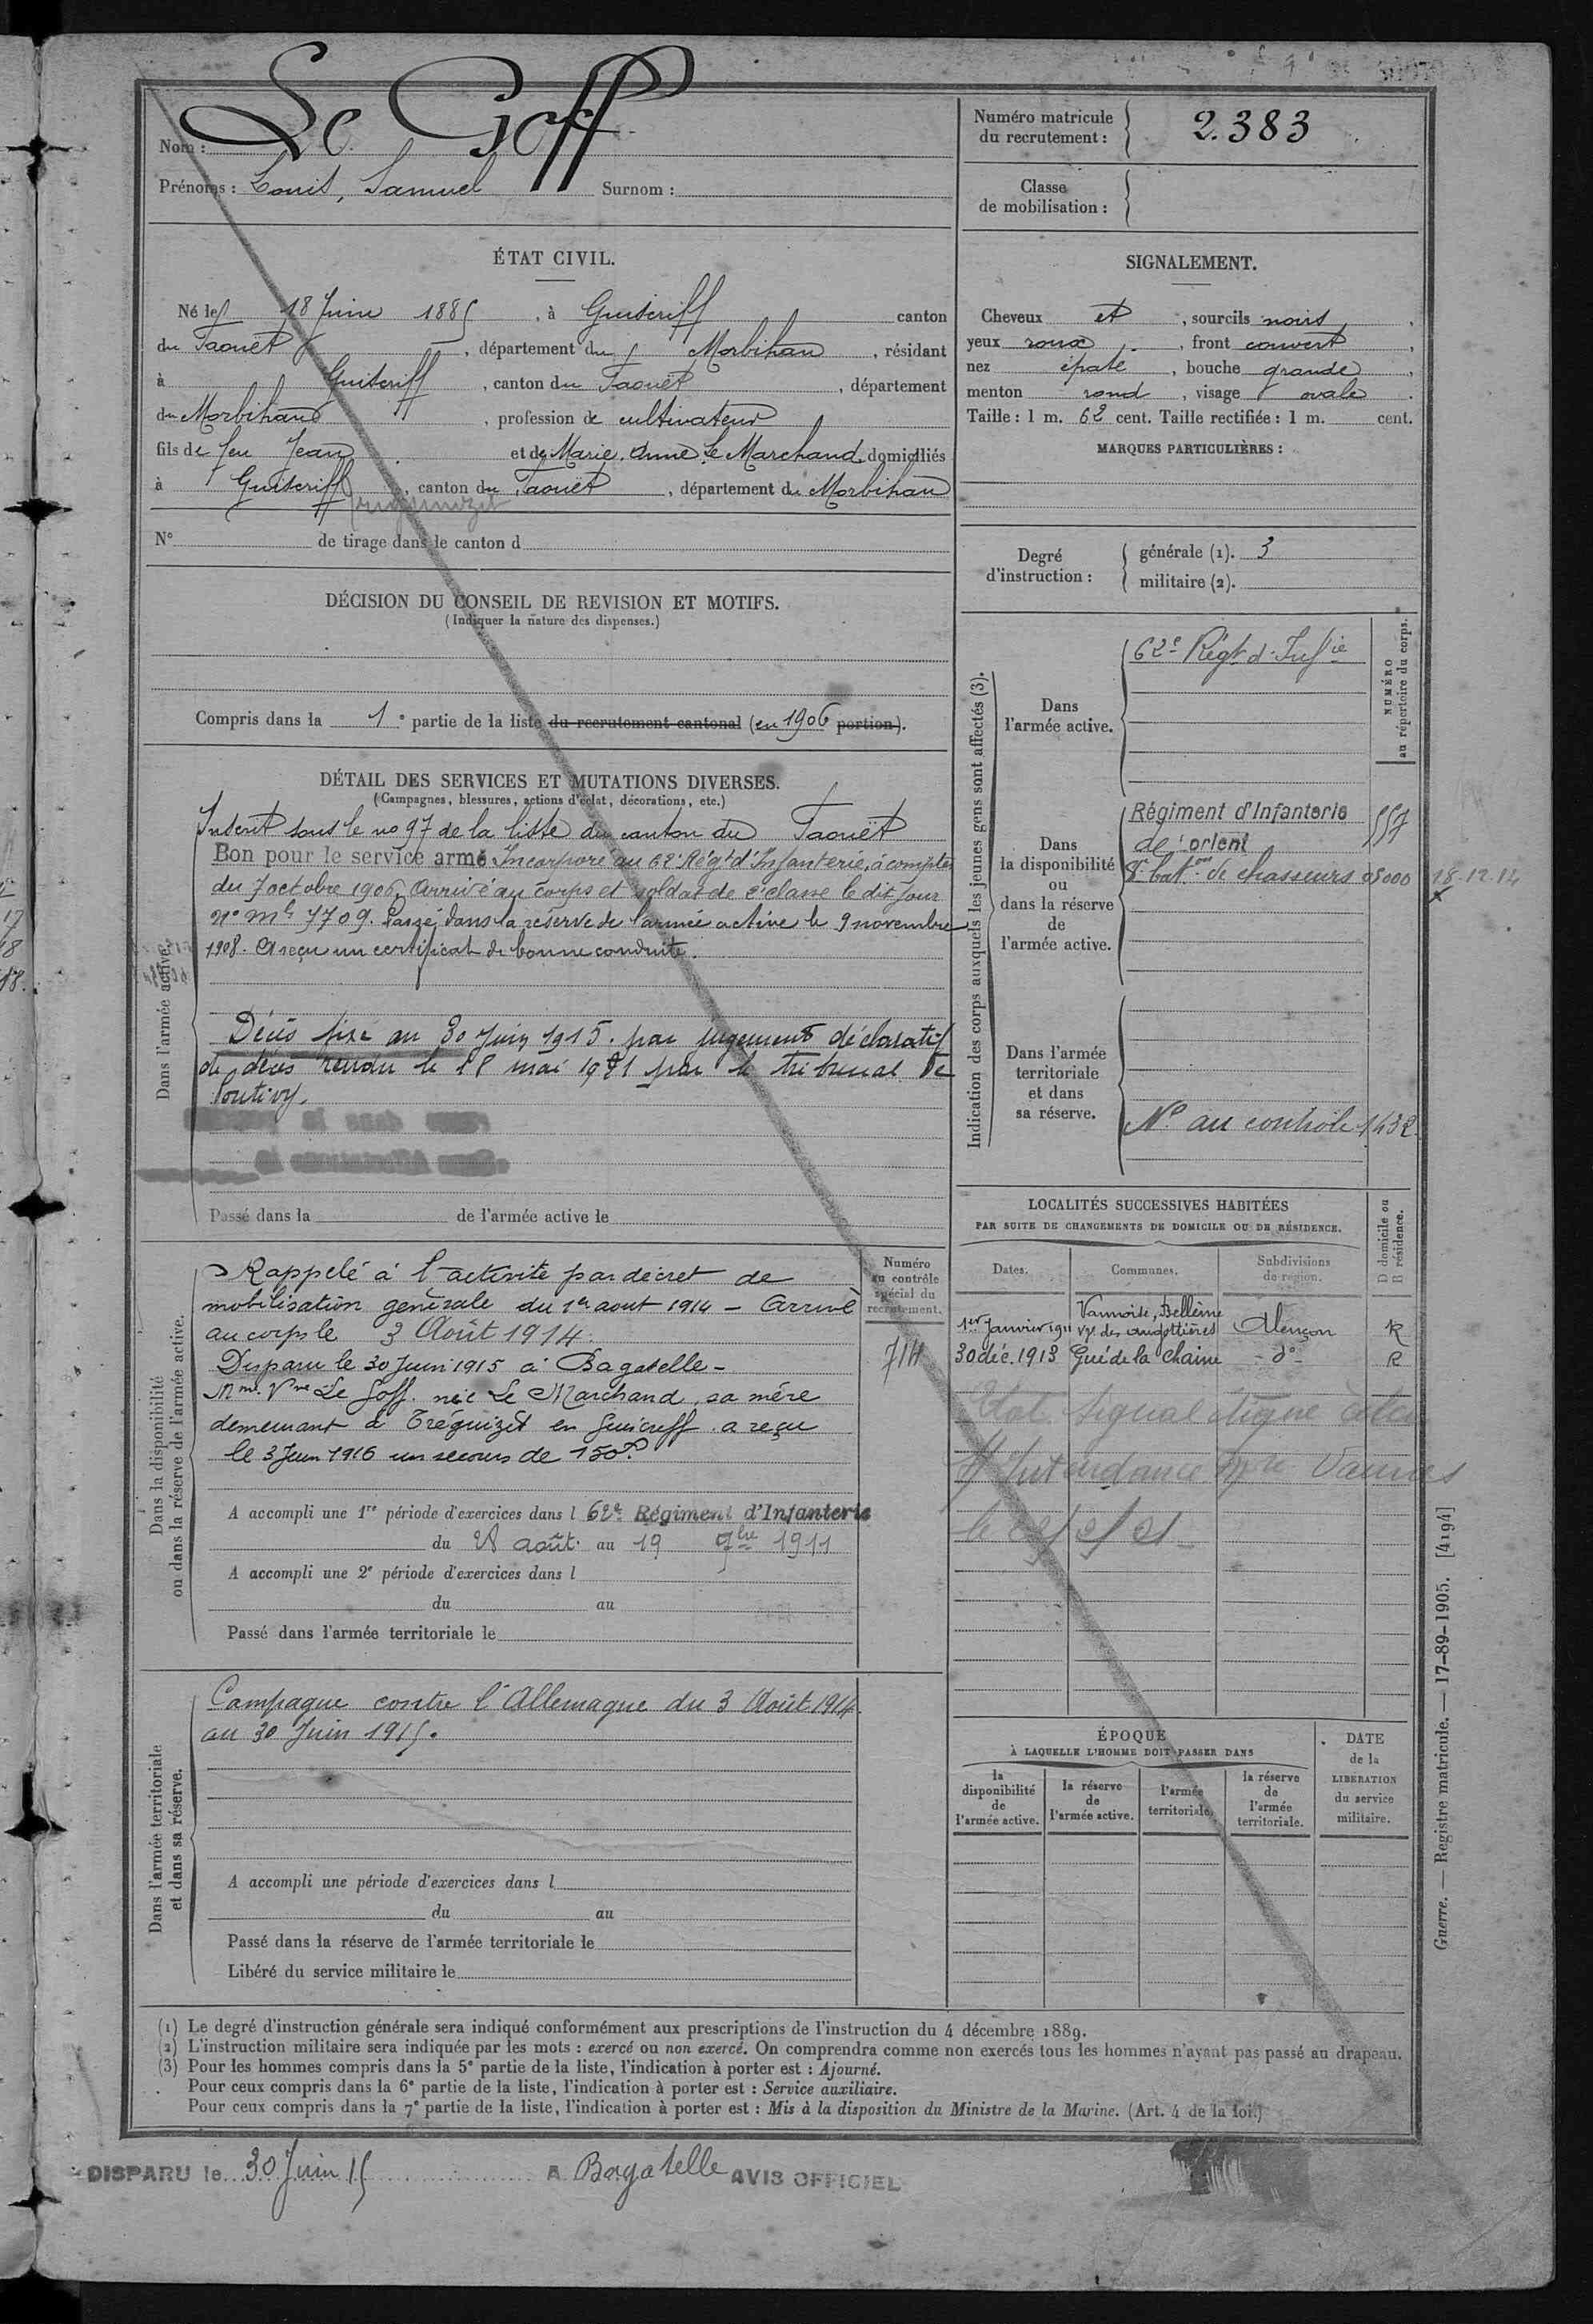 Nom : Le Goff
Prénoms : Louis, Samuel Surnom :
ÉTAT CIVIL.
Né le 18 Juin 1885, à Guiscriff canton
du Faouët, département du Morbihan, résidant
à Guiscriff, canton du Faouët, département
du Morbihan, profession de cultivateur
fils de feu Jean et de Marie Anne Le Marchand domiciliés
à Guiscriff, canton du Faouët, département du Morbihan
N° de tirage dans le canton d
DÉCISION DU CONSEIL DE REVISION ET MOTIFS.
(Indiquer la nature des dispenses.)
Compris dans la 1e partie de la liste du recrutement cantonal (en 1906 portion).
DÉTAIL DES SERVICES ET MUTATIONS DIVERSES.
(Campagnes, blessures, actions d'éclat, décorations, etc.)
Dans l'armée active.
Inscrit sous le no 97 de la liste du canton du Faouët
Bon pour le service armé Incorporé au 62e Régt d'Infanterie, à compter
du 7 octobre 1906. Arrivé au corps et soldat de 2e classe le dit jour
No Mle 7709. Passé dans la réserve de l'armée active le 9 novembre
1908. A reçu un certificat de bonne conduite.
Décès fixé au 30 Juin 1915. par jugement déclaratif
de décès rendu le 18 mai 1921 par le tribunal de
Pontivy.
Passé dans la de l'armée active le
Dans la disponibilité
ou dans la réserve de l'armée active.
Rappelé à l'activité par décret de
mobilisation générale du 1er aout 1914 - Arrivé
au corps le 3 Août 1914.
Disparu le 30 Juin 1915 à Bagatelle -
Mme Vve Le Goff née Le Marchand, sa mère
demeurant à Tréguizet en Guiscriff a reçu
le 3 Juin 1916 un secours de 150f
Numéro
au contrôle
spécial du
recrutement.
714
A accompli une 1re période d'exercices dans l 62e Régiment d'Infanterie
du 28 août au 19 7bre 1911
A accompli une 2e période d'exercices dans l
du au
Passé dans l'armée territoriale le
Dans l'armée territoriale
et dans sa réserve.
Campagne contre l'Allemagne du 3 Août 1914
au 30 Juin 1915.
A accompli une période d'exercices dans l
du au
Passé dans la réserve de l'armée territoriale le
Libéré du service militaire le
Numéro matricule
du recrutement : 2.383
Classe
de mobilisation :
SIGNALEMENT.
Cheveux et, sourcils noirs,
yeux roux, front couvert,
nez épaté, bouche grande,
menton rond, visage ovale.
Taille : 1 m. 62 cent. Taille rectifiée : 1 m. cent.
MARQUES PARTICULIÈRES :
Degré
d'instruction :
générale (1). 3
militaire (2).
Indication des corps auxquels les jeunes gens sont affectés (3).
NUMÉRO
au répertoire du corps.
Dans
l'armée active.
62e Régt d'Infie
Dans
la disponibilité
ou
dans la réserve
de
l'armée active.
Régiment d'Infanterie
de Lorient 557
8e bat.on de chasseurs 08000 18.12.14
Dans l'armée
territoriale
et dans
sa réserve.
No au contrôle 1432
LOCALITÉS SUCCESSIVES HABITÉES
PAR SUITE DE CHANGEMENTS DE DOMICILE OU DE RÉSIDENCE.
D domicile ou
R résidence.
Dates. Communes. Subdivisions
de région.
1er Janvier 1911 Vaunoise, Bellême
vge des Augottières Alençon R
30 déc. 1913 Gué de la Chaine - do - R
Etat signalétique
Intendance Mre Vannes
ÉPOQUE
À LAQUELLE L'HOMME DOIT PASSER DANS
la
disponibilité
de
l'armée active.
la réserve
de
l'armée active.
l'armée
territoriale.
la réserve
de
l'armée
territoriale.
DATE
de la
LIBÉRATION
du service
militaire.
Guerre. — Registre matricule. — 17-89-1905. [4194]
(1) Le degré d'instruction générale sera indiqué conformément aux prescriptions de l'instruction du 4 décembre 1889.
(2) L'instruction militaire sera indiquée par les mots : exercé ou non exercé. On comprendra comme non exercés tous les hommes n'ayant pas passé au drapeau.
(3) Pour les hommes compris dans la 5e partie de la liste, l'indication à porter est : Ajourné.
Pour ceux compris dans la 6e partie de la liste, l'indication à porter est : Service auxiliaire.
Pour ceux compris dans la 7e partie de la liste, l'indication à porter est : Mis à la disposition du Ministre de la Marine. (Art. 4 de la loi.)
DISPARU le 30 Juin 15 A Bagatelle AVIS OFFICIEL